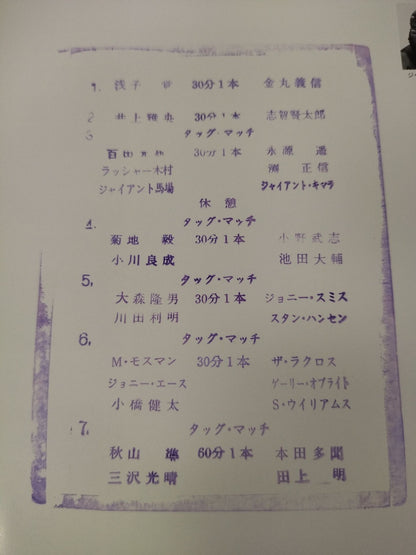 1. 浅子 覚 30分1本 金丸義信
2 井上雅央 30分1本 志賀賢太郎
3 タッグ・マッチ
百田光雄 30分1本 永源 遙
ラッシャー木村 渕 正信
ジャイアント馬場 ジャイアント・キマラ
休憩
4. タッグ・マッチ
菊地 毅 30分1本 小野武志
小川良成 池田大輔
5, タッグ・マッチ
大森隆男 30分1本 ジョニー・スミス
川田利明 スタン・ハンセン
6, タッグ・マッチ
M・モスマン 30分1本 ザ・ラクロス
ジョニー・エース ゲーリー・オブライト
小橋健太 S・ウイリアムス
7. タッグ・マッチ
秋山 準 60分1本 本田多聞
三沢光晴 田上 明